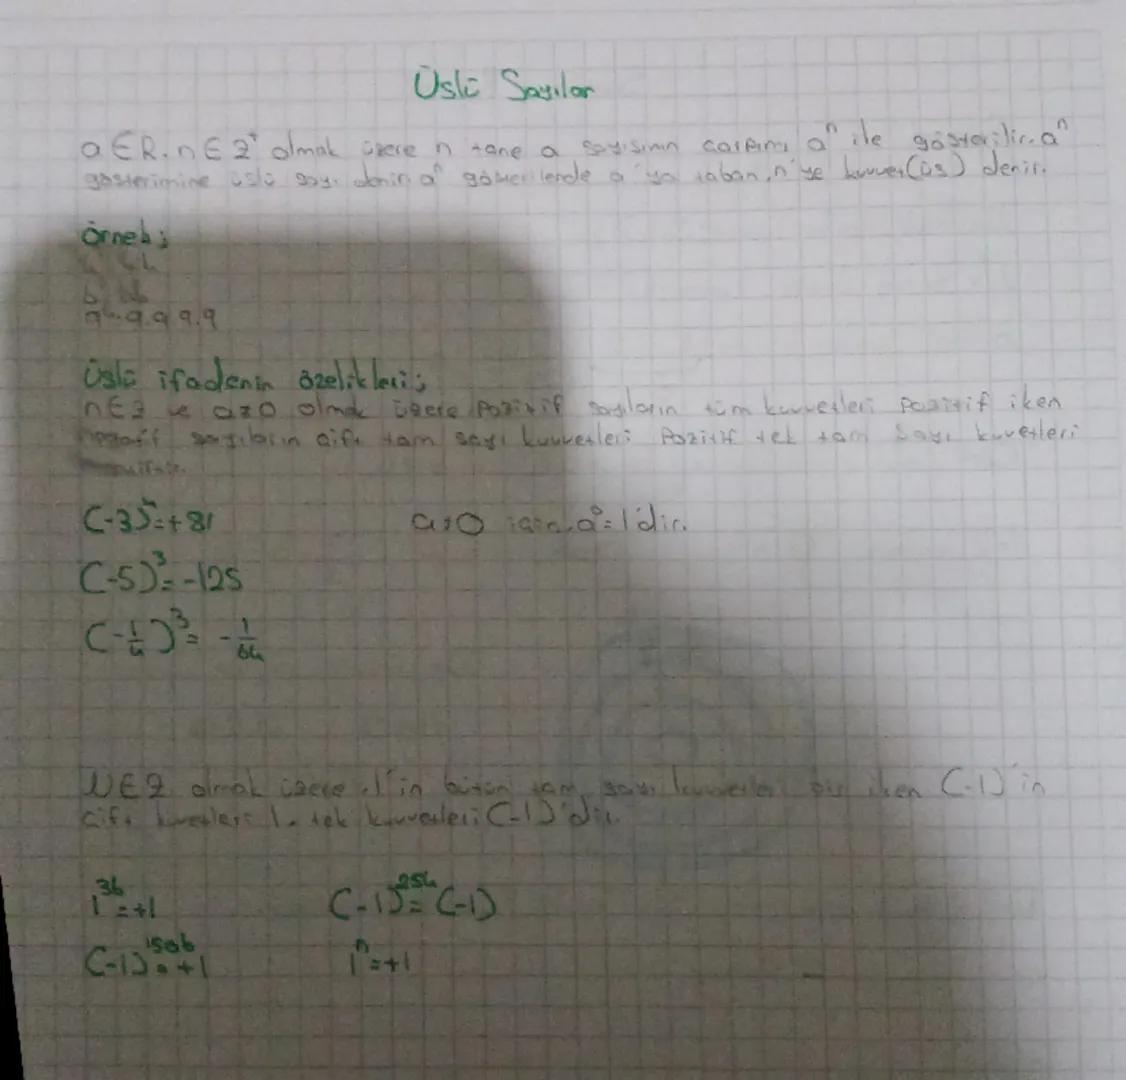 Üslü Sayılar
a ∈ R, n ∈ Z⁺ olmak üzere n tane a sayısının çarpımı aⁿ ile gösterilir. aⁿ
gösterimine üslü sayı denir. aⁿ a'ya taban, n'ye kuvvet (üs) denir.
Örnek;
9.9.9.9
Üslü ifadenin özelikleri;
ve a≠0 olmak üzere Pozitif sayıların tüm kuvvetleri Pozitif iken
negatif sayıların çift tam sayı kuvvetleri Pozitif tek tam sayı kuvetleri
(-3)⁴=+81
a≠0 için a⁰=1'dir.
(-5)³=-125
(-1/4)³= -1/64
olmak üzere 1'in bütün tam sayı kuvvetleri bir iken (-1)'in
çift kuvetleri 1, tek kuvvetleri (-1)'dir.
1³⁶=+1
(-1)²⁵⁴=(-1)
(-1)¹⁵⁰⁶=+1
1ⁿ=+1